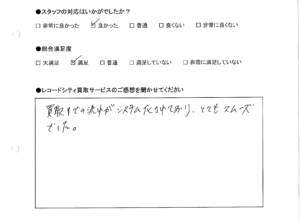 ●スタッフの対応はいかがでしたか？
□ 非常に良かった ☑ 良かった □ 普通 □ 良くない □ 非常に良くない
●総合満足度
□ 大満足 ☑ 満足 □ 普通 □ 満足していない □ 非常に満足していない
●レコードシティ買取サービスのご感想を聞かせてください
買取までの流れがシステム化されており、とてもスムーズ
でした。